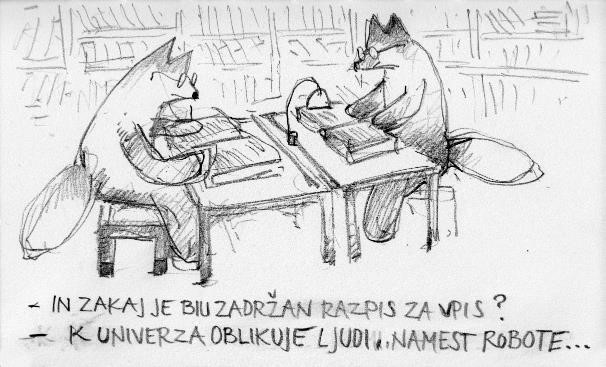 - IN ZAKAJ JE BIU ZADRŽAN RAZPIS ZA VPIS?
- K UNIVERZA OBLIKUJE LJUDI... NAMEST ROBOTE...